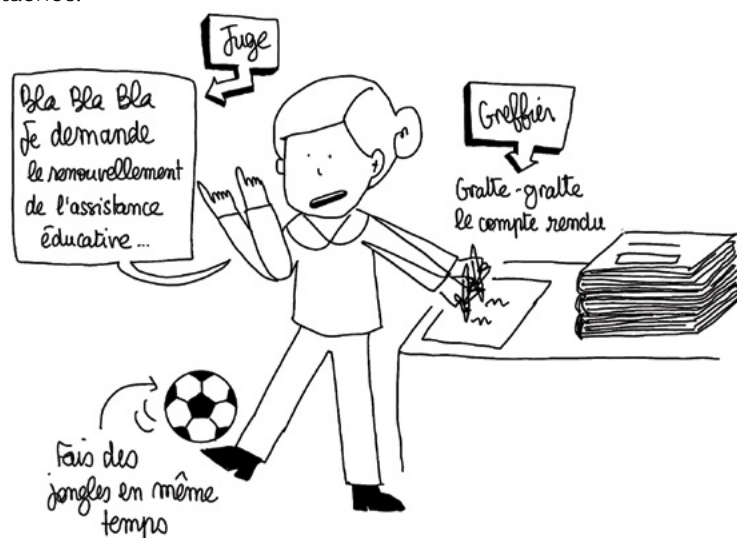 Juge
Bla Bla Bla
Je demande
le renouvellement
de l'assistance
éducative...
Greffier
Gratte-gratte
le compte rendu
Fais des
jongles en même
temps